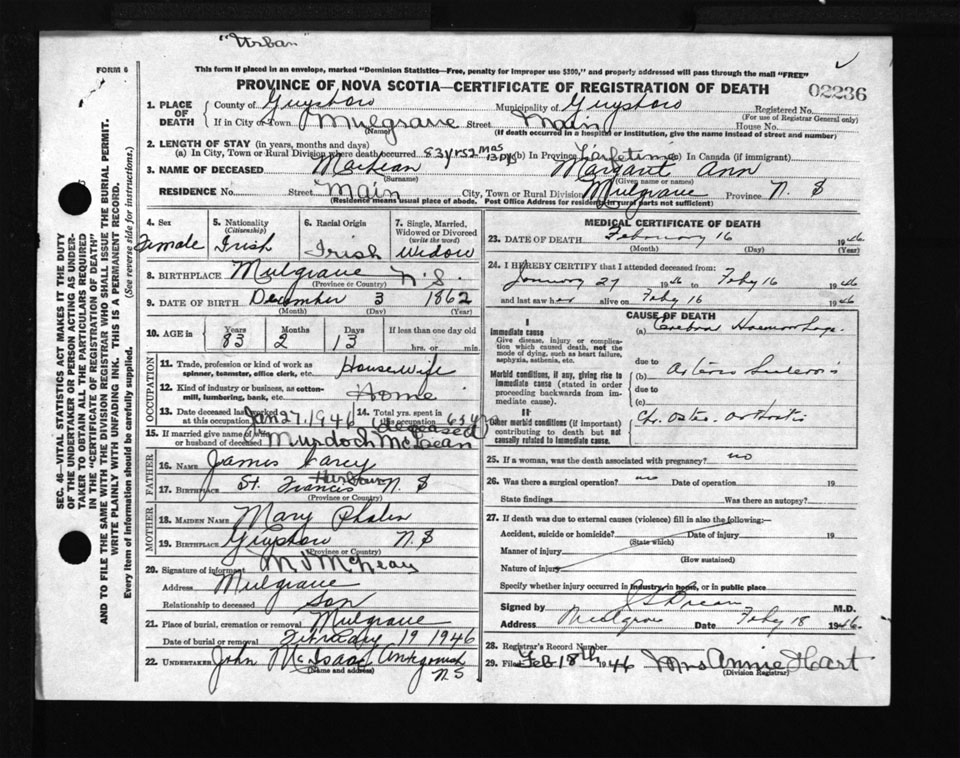 "Urban"
FORM 6
This form if placed in an envelope, marked "Dominion Statistics—Free, penalty for improper use $300," and properly addressed will pass through the mail "FREE"
PROVINCE OF NOVA SCOTIA—CERTIFICATE OF REGISTRATION OF DEATH
02236
1. PLACE OF DEATH
County of Guysboro Municipality of Guysboro Registered No.
(For use of Registrar General only)
If in City or Town Mulgrave Street Main House No.
(Name) (If death occurred in a hospital or institution, give its name instead of street and number)
2. LENGTH OF STAY (in years, months and days)
(a) In City, Town or Rural Division where death occurred 83 yrs 2 mos 13 dys (b) In Province Lifetime (c) In Canada (if immigrant)
3. NAME OF DECEASED MacLean Margaret Ann
(Surname) (Given name or names)
RESIDENCE No. Street Main City, Town or Rural Division Mulgrave Province N. S
(Residence means usual place of abode. Post Office Address for residents in rural parts not sufficient)
4. Sex Female
5. Nationality (Citizenship) Irish
6. Racial Origin Irish
7. Single, Married, Widowed or Divorced (write the word) Widow
8. BIRTHPLACE Mulgrave N.S.
(Province or Country)
9. DATE OF BIRTH December 3 1862
(Month) (Day) (Year)
10. AGE in Years 83 Months 2 Days 13 If less than one day old hrs. or min.
OCCUPATION
11. Trade, profession or kind of work as spinner, teamster, office clerk, etc. Housewife
12. Kind of industry or business, as cotton-mill, lumbering, bank, etc. Home
13. Date deceased last worked at this occupation Jan 27, 1946 14. Total yrs. spent in this occupation 65 yrs
15. If married give name of wife or husband of deceased Murdoch McLean (deceased)
FATHER
16. NAME James Carey
17. BIRTHPLACE St. Francis Harbour N. S
(Province or Country)
MOTHER
18. MAIDEN NAME Mary Phalen
19. BIRTHPLACE Guysboro N. S
(Province or Country)
20. Signature of informant M J McLean
Address Mulgrave
Relationship to deceased Son
21. Place of burial, cremation or removal Mulgrave
Date of burial or removal February 19 1946
22. UNDERTAKER John McIsaac Antigonish N S
(Name and address)
MEDICAL CERTIFICATE OF DEATH
23. DATE OF DEATH February 16 1946
(Month) (Day) (Year)
24. I HEREBY CERTIFY that I attended deceased from:
January 27 1946 to Feby 16 1946
and last saw her alive on Feby 16 1946
CAUSE OF DEATH
I
Immediate cause
Give disease, injury or complication which caused death, not the mode of dying, such as heart failure, asphyxia, asthenia, etc.
(a) Cerebral Haemorrhage
due to
Morbid conditions, if any, giving rise to immediate cause (stated in order proceeding backwards from immediate cause).
(b) Arterio Sclerosis
due to
(c)
II
Other morbid conditions (if important) contributing to death but not causally related to immediate cause.
Ch. Osteo. Arthritis
25. If a woman, was the death associated with pregnancy? no
26. Was there a surgical operation? no Date of operation 19
State findings Was there an autopsy?
27. If death was due to external causes (violence) fill in also the following:—
Accident, suicide or homicide? Date of injury 19
(State which)
Manner of injury
(How sustained)
Nature of injury
Specify whether injury occurred in industry, in home, or in public place
Signed by M.D.
Address Mulgrave Date Feby 18 1946.
28. Registrar's Record Number
29. Filed Feb 18th 1946 Mrs Annie Hart
(Division Registrar)
SEC. 46—VITAL STATISTICS ACT MAKES IT THE DUTY OF THE UNDERTAKER OR PERSON ACTING AS UNDERTAKER TO OBTAIN ALL THE PARTICULARS REQUIRED IN THE "CERTIFICATE OF REGISTRATION OF DEATH" AND TO FILE THE SAME WITH THE DIVISION REGISTRAR WHO SHALL ISSUE THE BURIAL PERMIT.
WRITE PLAINLY WITH UNFADING INK. THIS IS A PERMANENT RECORD.
Every item of information should be carefully supplied. (See reverse side for instructions.)